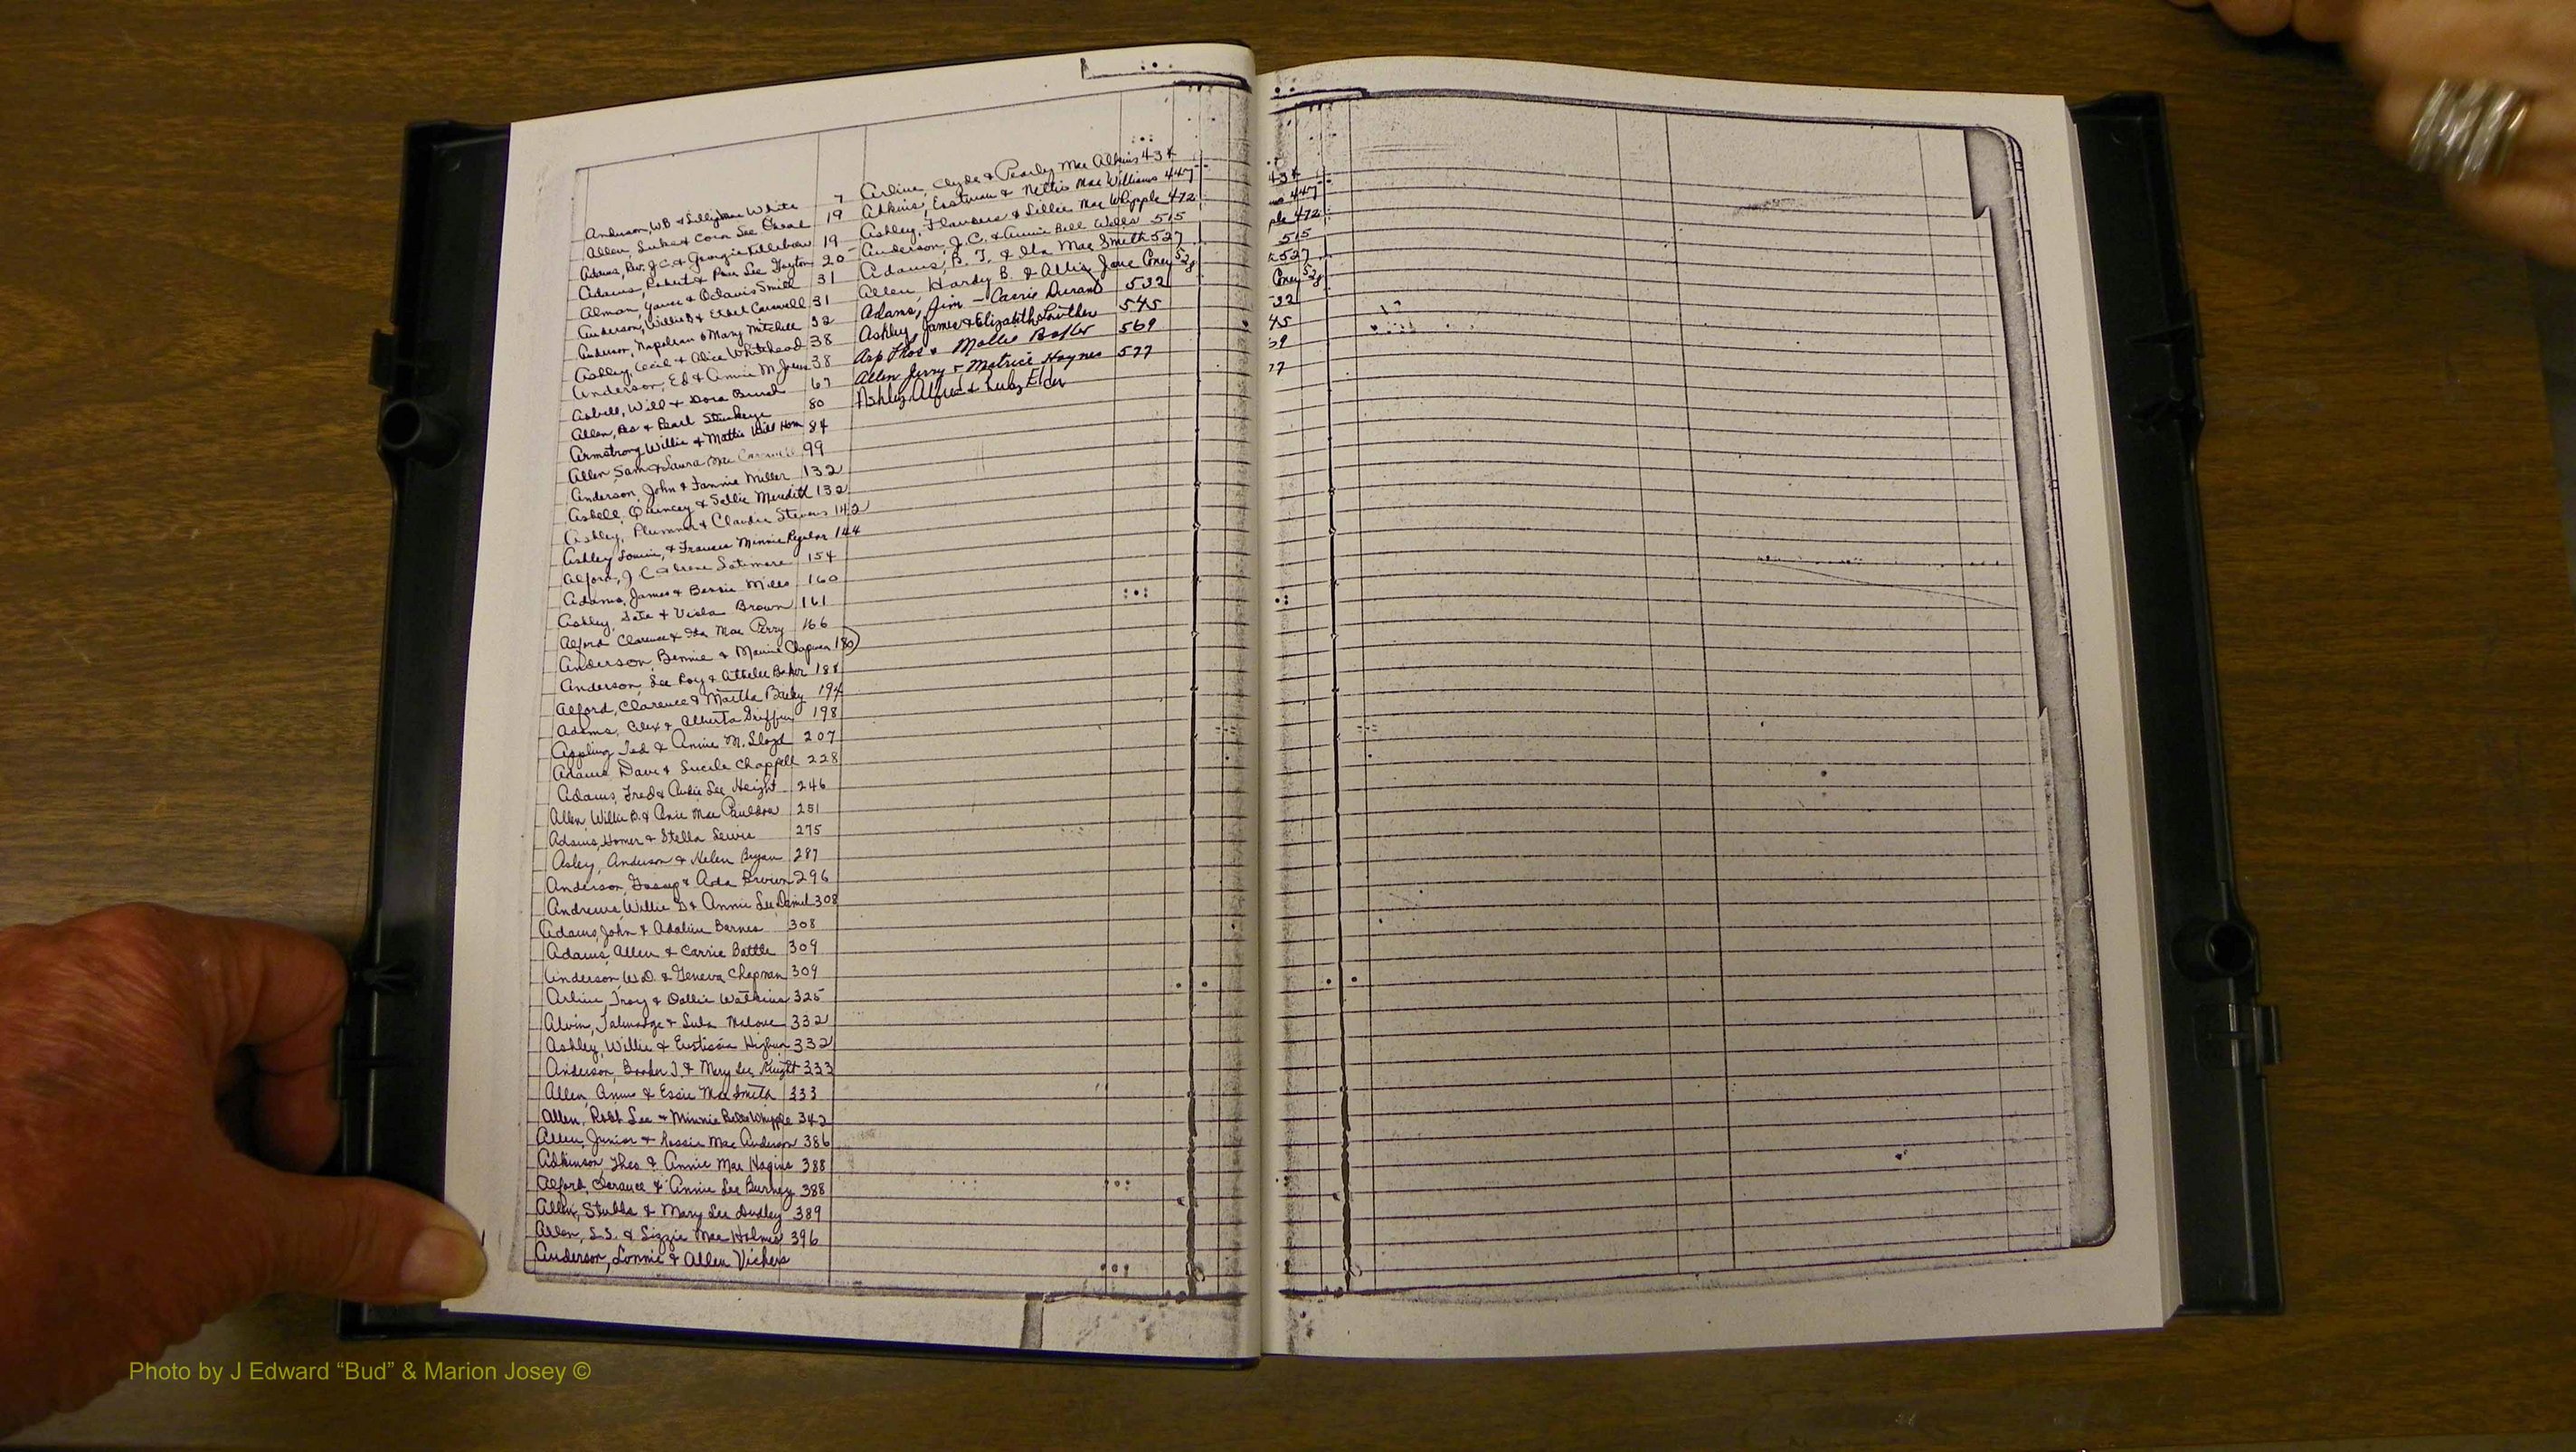 Anderson, W.B & Lilly Mae White 7
Allen, Luke & Cora Lee 19
Adams, Rev. J.C. & Georgia Killebrew 19
Adams, Robert & Lee 20
Alman, & Octavis Smith 31
Anderson, Willie B & Ethel Carswell 31
Anderson, Napolean & Mary Mitchell 32
Ashley, Cecil & Alice Whitehead 38
Anderson, Ed & Annie M. 38
Asbell, Will & Dora 67
Allen, & Pearl Stuckeye 80
Armstrong Willie & Mattie Will Horn 84
Allen, Sam & Laura Mae 99
Anderson, John & Fannie Miller 132
Asbell, Quincey & Sallie Meredith 132
Ashley, Plummer & Claudia Stevens 142
Ashley & Frances Minnie 144
Alford, J C & Irene Latimore 154
Adams, James & Bessie Mills 160
Ashley, & Viola Brown 161
Alford Clarence & Ida Mae Perry 166
Anderson, Bennie & Chapman 180
Anderson, Lee Roy & Baker 188
Alford, Clarence & Martha 194
Adams, & Alberta Griffin 198
Appling Ted & Annie M. Lloyd 207
Adams, Dave & Lucile Chappell 228
Adams, Fred & Lee Height 246
Allen Willie B. & Mae 251
Adams, Homer & Stella Lewis 275
Asley, Anderson & Helen Bryan 287
Anderson, & Ada Brown 296
Andrews, Willie D & Annie Lee Daniel 308
Adams, John & Adaline Barnes 308
Adams, Allen & Carrie Battle 309
Anderson, W.D. & Geneva Chapman 309
Arline, Troy & Dollie Watkins 325
Alvin, Talmadge & Lula Malone 332
Ashley, Willie & 332
Anderson, Booker T. & Mary Lee Knight 333
Allen, & Essie Mae Smith 333
Allen, Robt Lee & Minnie Belle Whipple 342
Allen, Junior & Rossie Mae Anderson 386
Adkinson, Theo & Annie Mae Hagins 388
Alford, & Annie Lee Burney 388
Allen, Stubbs & Mary Lee Dudley 389
Allen, L.S. & Lizzie Mae Holmes 396
Anderson, Lonnie & Allen Vickers
Arline, Clyde & Pearly Mae Adkins 434
Adkins, Eastman & Nettie Mae Williams 447
Ashley, & Lillie Mae Whipple 472
Anderson, J.C. & Annie Bell Wells 515
Adams, B. T. & Ida Mae Smith 527
Allen Hardy B. & Allie Jane Coney 528
Adams, Jim - Carrie Durand 532
Ashley, James & Elizabeth 545
Arp Thos & Mollie 569
Allen Jerry & Matrice Haynes 577
Ashley, Alfred & Ruby Elder
434
447
ple 472
515
527
Coney 528
32
45
69
77
Photo by J Edward “Bud” & Marion Josey ©